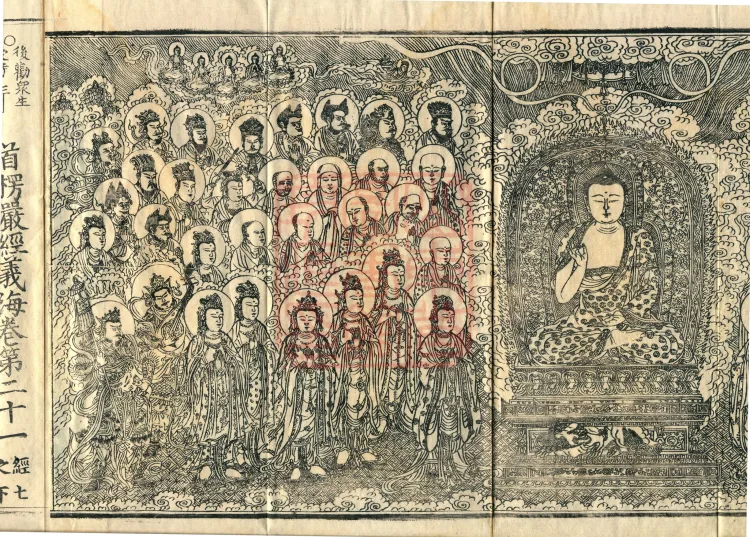 後勸衆生
首楞嚴經義海卷第二十一
經七
之下